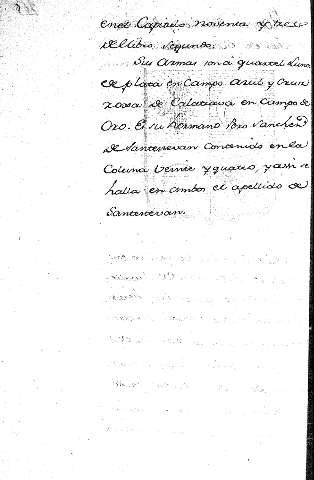 en el Capitulo, noventa y tres
del libro Segundo.
Sus Armas son à quartel Luna
de plata en Campo Azul y Cruz
roxa de Calatrava en Campo de
Oro. E su hermano Pero Sanchez
de Santestevan Contenido en la
Coluna Veinte y quatro, y assi se
halla en ambos el apellido de
Santestevan.